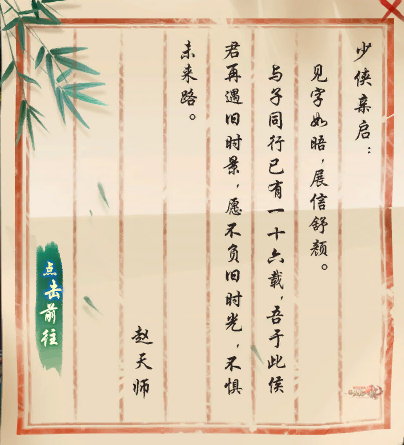 少侠亲启：
见字如晤，展信舒颜。
与子同行已有一十六载，吾于此侯
君再遇旧时景，愿不负旧时光，不惧
未来路。
赵天师
点击前往